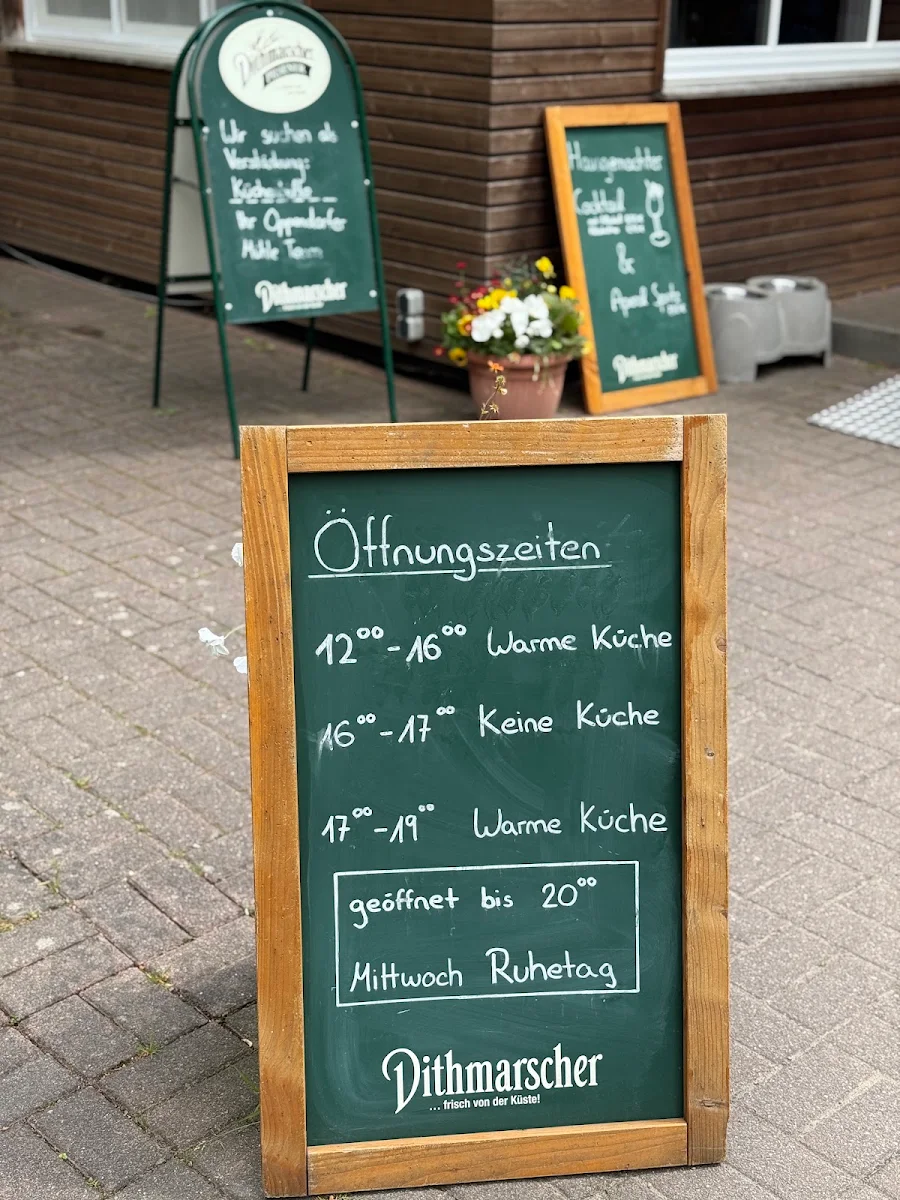 Dithmarscher
PILSENER
Wir suchen als
Verstärkung:
Küchenhilfe
Ihr Oppendorfer
Mühle Team
Dithmarscher
Hausgemachter
Cocktail
&
Aperol Spritz
Dithmarscher
Öffnungszeiten
12⁰⁰-16⁰⁰ Warme Küche
16⁰⁰-17⁰⁰ Keine Küche
17⁰⁰-19⁰⁰ Warme Küche
geöffnet bis 20⁰⁰
Mittwoch Ruhetag
Dithmarscher
... frisch von der Küste!